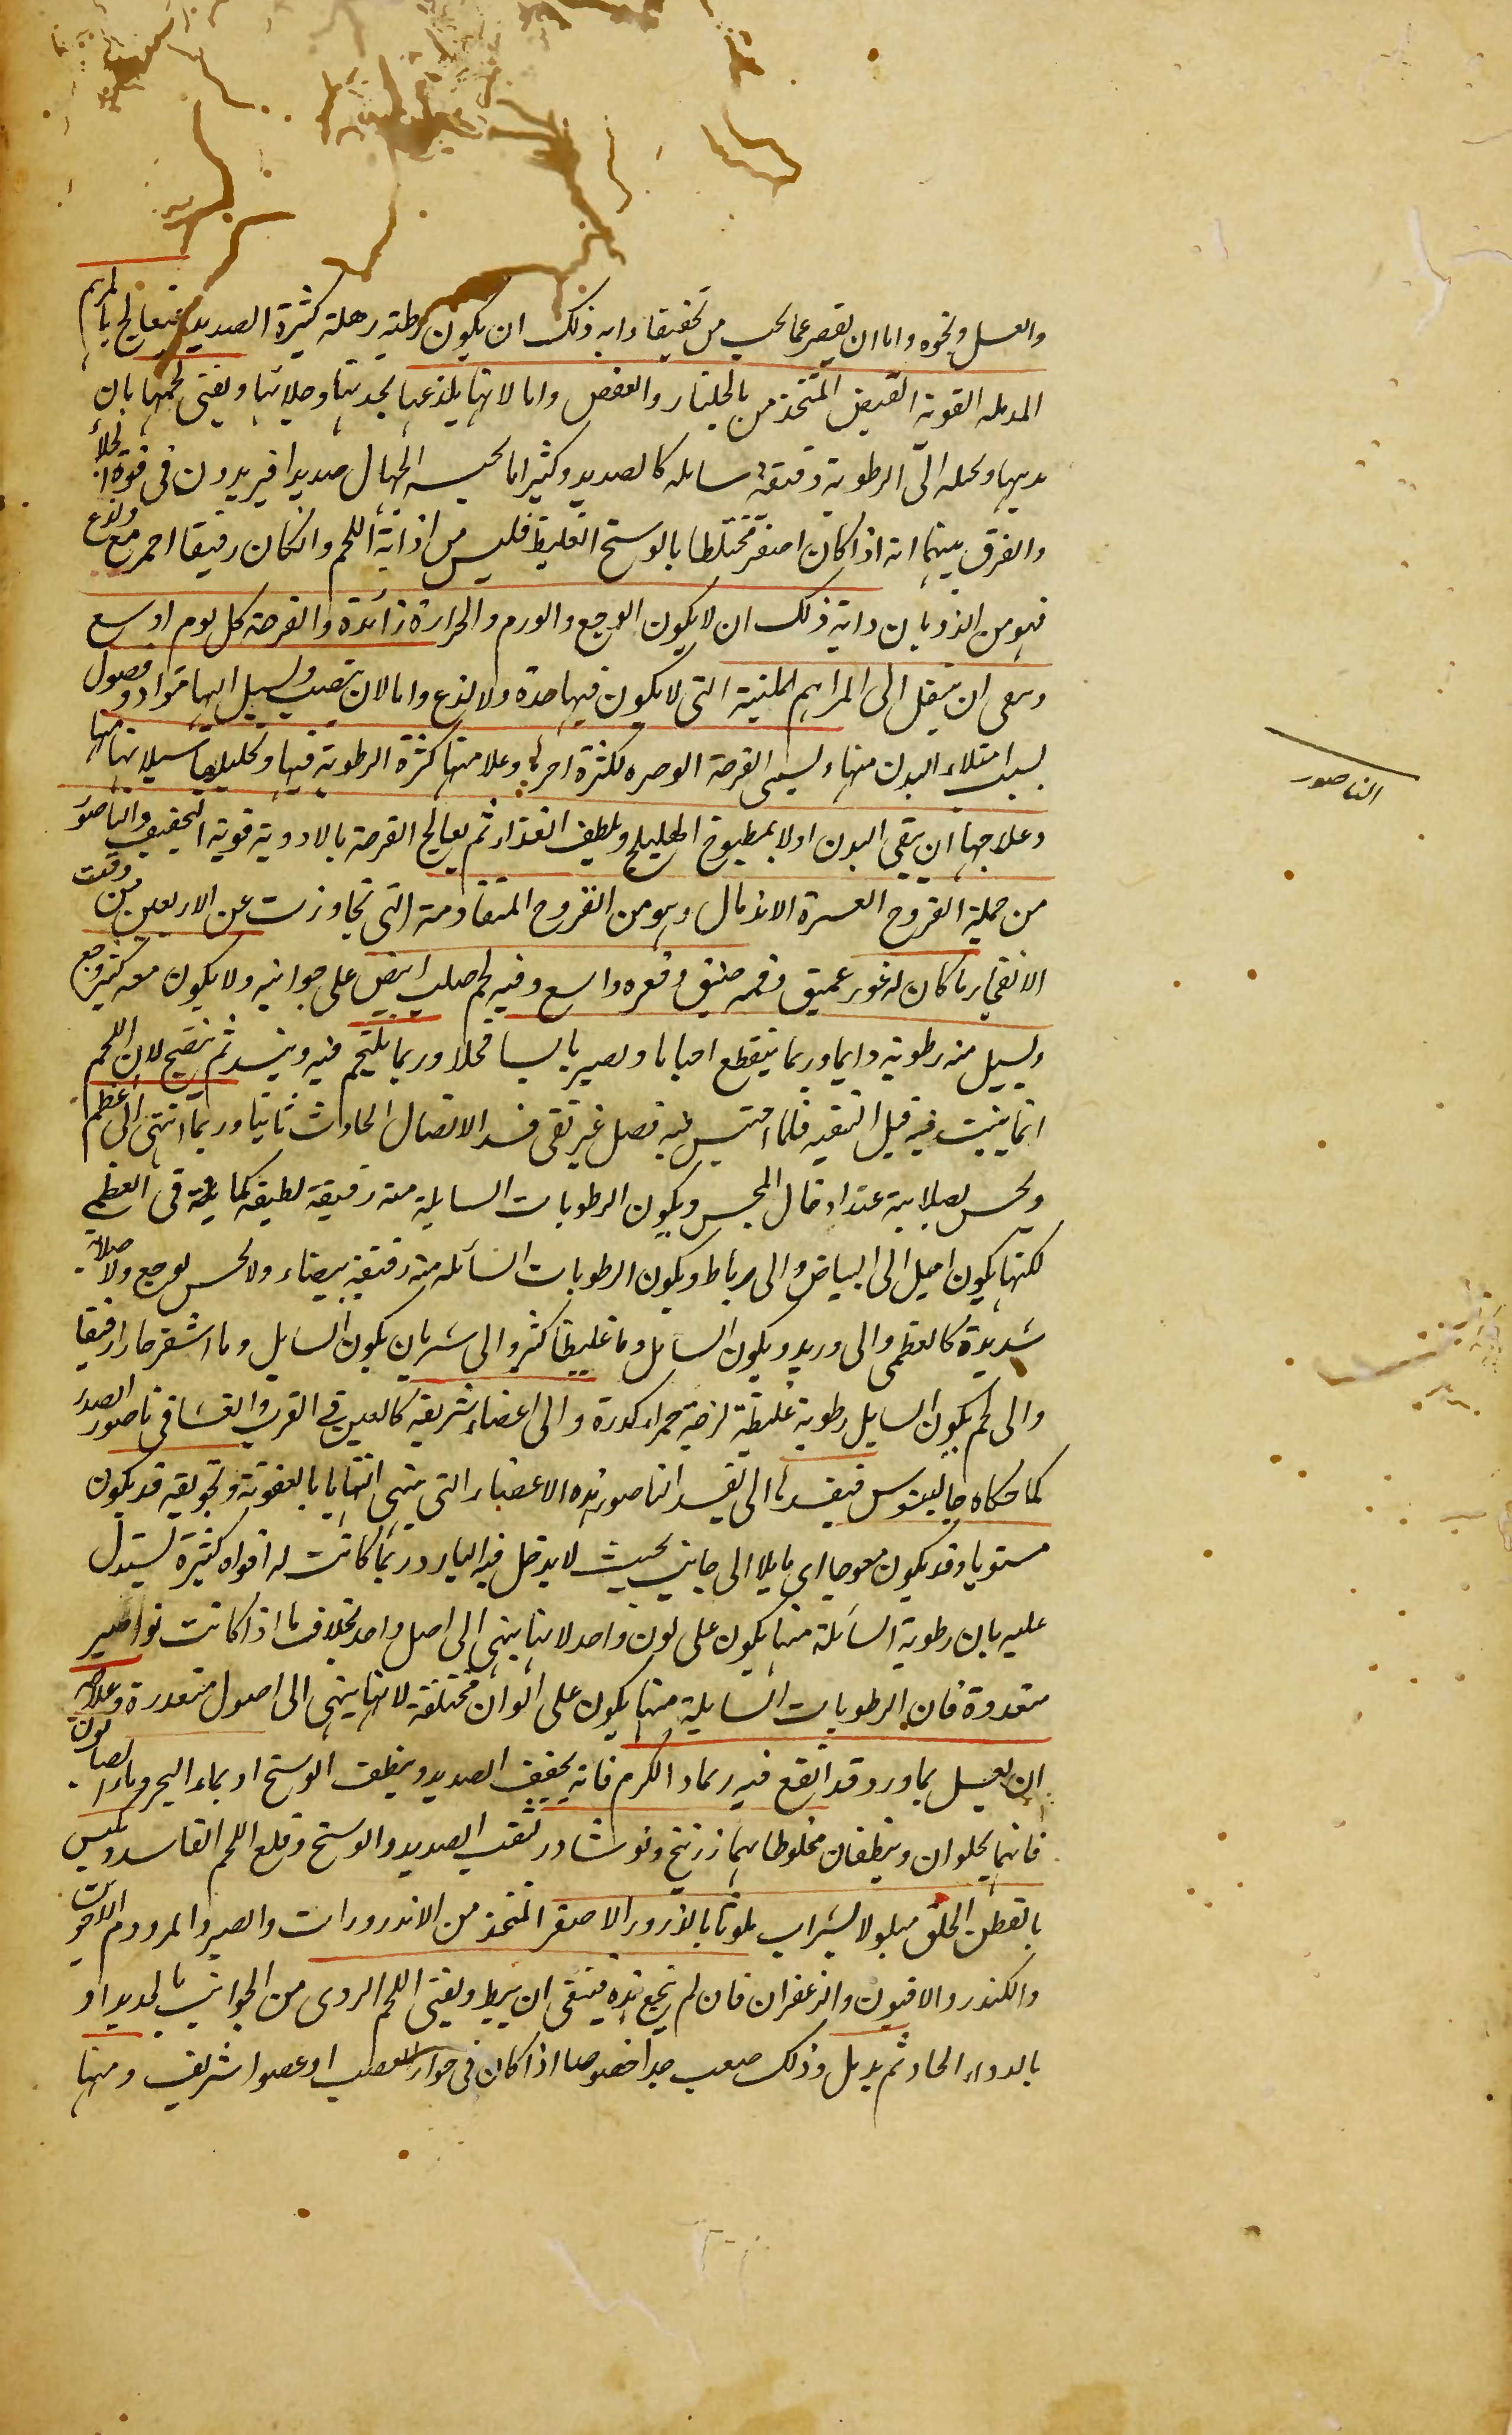 والعسل ونحوه واما ان يقصر عما يجب من تخفيفا وايه ذلك ان يكون رطبة رهلة كثيرة الصديد فيعالج بالمراهم
المدمله القوية القبض المتخذ من بالجلنار والعفص واما لانها يلذعها بحدتها وجلائها ويفنى لحمها بان
يذيبها ويحلله الى الرطوبة رقيقة سايله كالصديد وكثيرا ما يحسبه الجهال صديدا فيزيدون فى قوة الجلأ
والفرق بينهما انه اذا كان اصفر مختلطا بالوسخ الغليظ فليس من اذابة اللحم وانكان رقيقا احمر مع ولذع
فهو من الذوبان واية ذلك ان لا يكون الوجع والورم والحرارة زائدة والقرحة كل يوم اوسع
وينبغى ان ينتقل الى المراهم الملينة التى لا يكون فيها حدة ولا لذع واما لان ينصب ويسيل اليها مواد وفضول
بسبب امتلاء البدن منها ويسمى القرحة الوضره لكثرة اجرائها وعلامتها كثرة الرطوبة فيها وتحليلها سيلانها منها
وعلاجها ان ينقى البدن اولا بمطبوخ الهليلج ويلطف الغذاء ثم يعالج القرحة بالادوية قوية التجفيف والناصور
من جملة القروح العسرة الاندمال وهو من القروح المتقادمة التى تجاوزت عن الاربعين من وقت
الانفجار ما كان له غور عميق وفمه ضيق وقعره واسع وفيه لحم صلب ابيض على جوانبه ولا يكون معه كثير وجع
ويسيل منه رطوبة دايما وربما ينقطع احيانا ويصير يابسا قحلا وربما يلتحم فيه وينسد ثم ينفتح لان اللحم
انما ينبت فيه قبل التنقيه فلما احتبس فيه فضل غير نقى فسد الاتصال الحادث ثانيا وربما انتهى الى عظم
ويحس بصلابته عند ادخال المجس ويكون الرطوبات السايلة منه رقيقة لطيفة كما يلمه فى العظمى
لكنها يكون اميل الى البياض والى رباط ويكون الرطوبات السائله منه رقيقة بيضاء ولا يحس بوجع ولا صلابة
شديدة كالعظمى والى وريد ويكون السايل دما غليظا كثيرا والى شريان يكون السايل دما اشقر حارا رقيقا
والى لحم يكون السايل رطوبة غليظة لزجة حمراء كدرة والى اعضاء شريفة كالعين فى الغرب والغشا فى ناصور الصدر
كما حكاه جالينوس فيفسدها الى يفسد الناصور هذه الاعضاء التى ينتهى اليها بالعفونة وتجويفه قد يكون
مستويا وقد يكون معوجا اى مايلا الى جانب بحيث لا يدخل فيه الميل وربما كانت له افواه كثيرة يستدل
عليه بان رطوبة السائلة منها يكون على لون واحد لانها ينتهى الى اصل واحد بخلاف ما اذا كانت نواصير
متعددة فان الرطوبات السايلة منها يكون على الوان مختلفة لانها ينتهى الى اصول متعددة وعلاجه
ان يغسل بماورد قد انقع فيه رماد الكرم فانه يجفف الصديد وينظف الوسخ او بماء البحر وماء الصابون
فانهما يجلوان وينظفان مخلوطا بهما زرنيخ ونوشادر لتنقية الصديد والوسخ وقلع اللحم الفاسد ويكبس
بالقطن الخلق مبلولا بشراب ملوثا بالذرور الاصفر المتخذ من الانذرورات والصبر والمر ودم الاخوين
والكندر والافيون والزعفران فان لم ينجع هذه فينبغى ان يبط ويفنى اللحم الردى من الجوانب بالحديد او
بالدواء الحاد ثم يدمل وذلك صعب جدا خصوصا اذا كان فى جوار العصب او عضوا شريف ومنها
الناصور